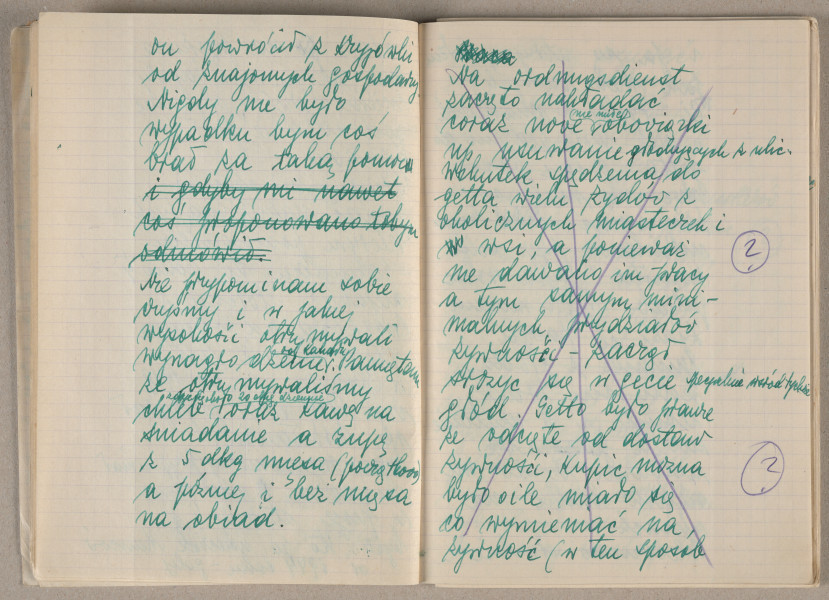 on powrócił z kryjówki
od znajomych gospodarzy
Nigdy nie było
wypadku bym coś
brał za taką pomoc
i gdyby mi nawet
coś proponowano to bym
odmówił.
Nie przypominam sobie
czyśmy i w jakiej
wysokości otrzymywali
wynagrodzenie. Pamiętam
że otrzymywaliśmy
chleb oraz kawę na
śniadanie a zupę
z 5 dkg mięsa (początkowo)
a później i bez mięsa
na obiad.
Praca
Na ordnungsdienst
zaczęto nakładać
nie miłe
coraz nowe obowiązki
np usuwanie z ulic.
Wskutek spędzenia do
getta wielu żydów z
okolicznych miasteczek i
wsi, a ponieważ
nie dawano im pracy
a tym samym mini-
malnych przydziałów
żywności – zaczął
srożyć się w gecie specjalnie wśród tychże
głód. Getto było prawie
że odcięte od dostaw
żywności, kupić można
było o ile miało się
co wymieniać na
żywność (w ten sposób
?
?